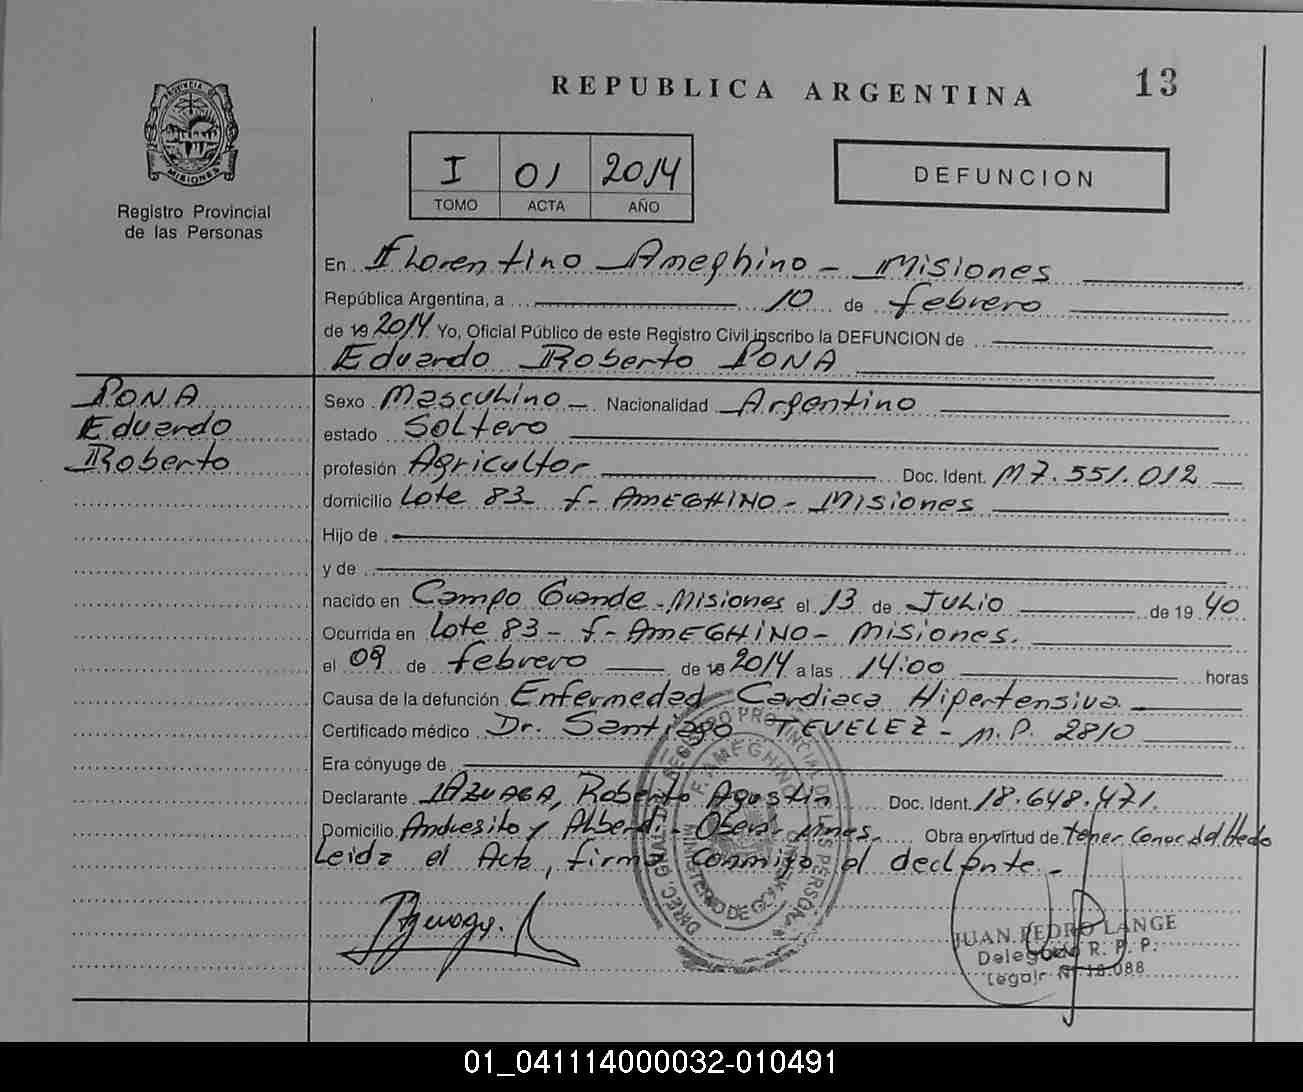 REPUBLICA ARGENTINA
13
PROVINCIA DE MISIONES
Registro Provincial
de las Personas
I 01 2014
TOMO ACTA AÑO
DEFUNCION
En Florentino Ameghino - Misiones
República Argentina, a 10 de febrero
de 19 2014 Yo, Oficial Público de este Registro Civil inscribo la DEFUNCION de
Eduardo Roberto PONA
PONA
Eduardo
Roberto
Sexo Masculino - Nacionalidad Argentino
estado Soltero
profesión Agricultor Doc. Ident. M7.551.012
domicilio Lote 83 - f - AMEGHINO - Misiones
Hijo de
y de
nacido en Campo Grande - Misiones el 13 de JULIO de 19 40
Ocurrida en Lote 83 - f - AMEGHINO - Misiones.
el 09 de febrero de 19 2014 a las 14:00 horas
Causa de la defunción Enfermedad Cardiaca Hipertensiva
Certificado médico Dr. Santiago TEVELEZ - M.P. 2810
Era cónyuge de
Declarante AZUAGA, Roberto Agustin Doc. Ident. 18.648.471.
Domicilio Andresito y Alberdi - Obera - Mnes. Obra en virtud de tener Conoc. del Hecho
Leida el Acta, firma conmigo el declante -
DIREC. GRAL. DEL REGISTRO PROVINCIAL DE LAS PERSONAS
F. AMEGHINO
MINISTERIO DE GOBIERNO
JUAN PEDRO LANGE
Delegado R. P. P.
Legajo Nº 18.088
01_041114000032-010491